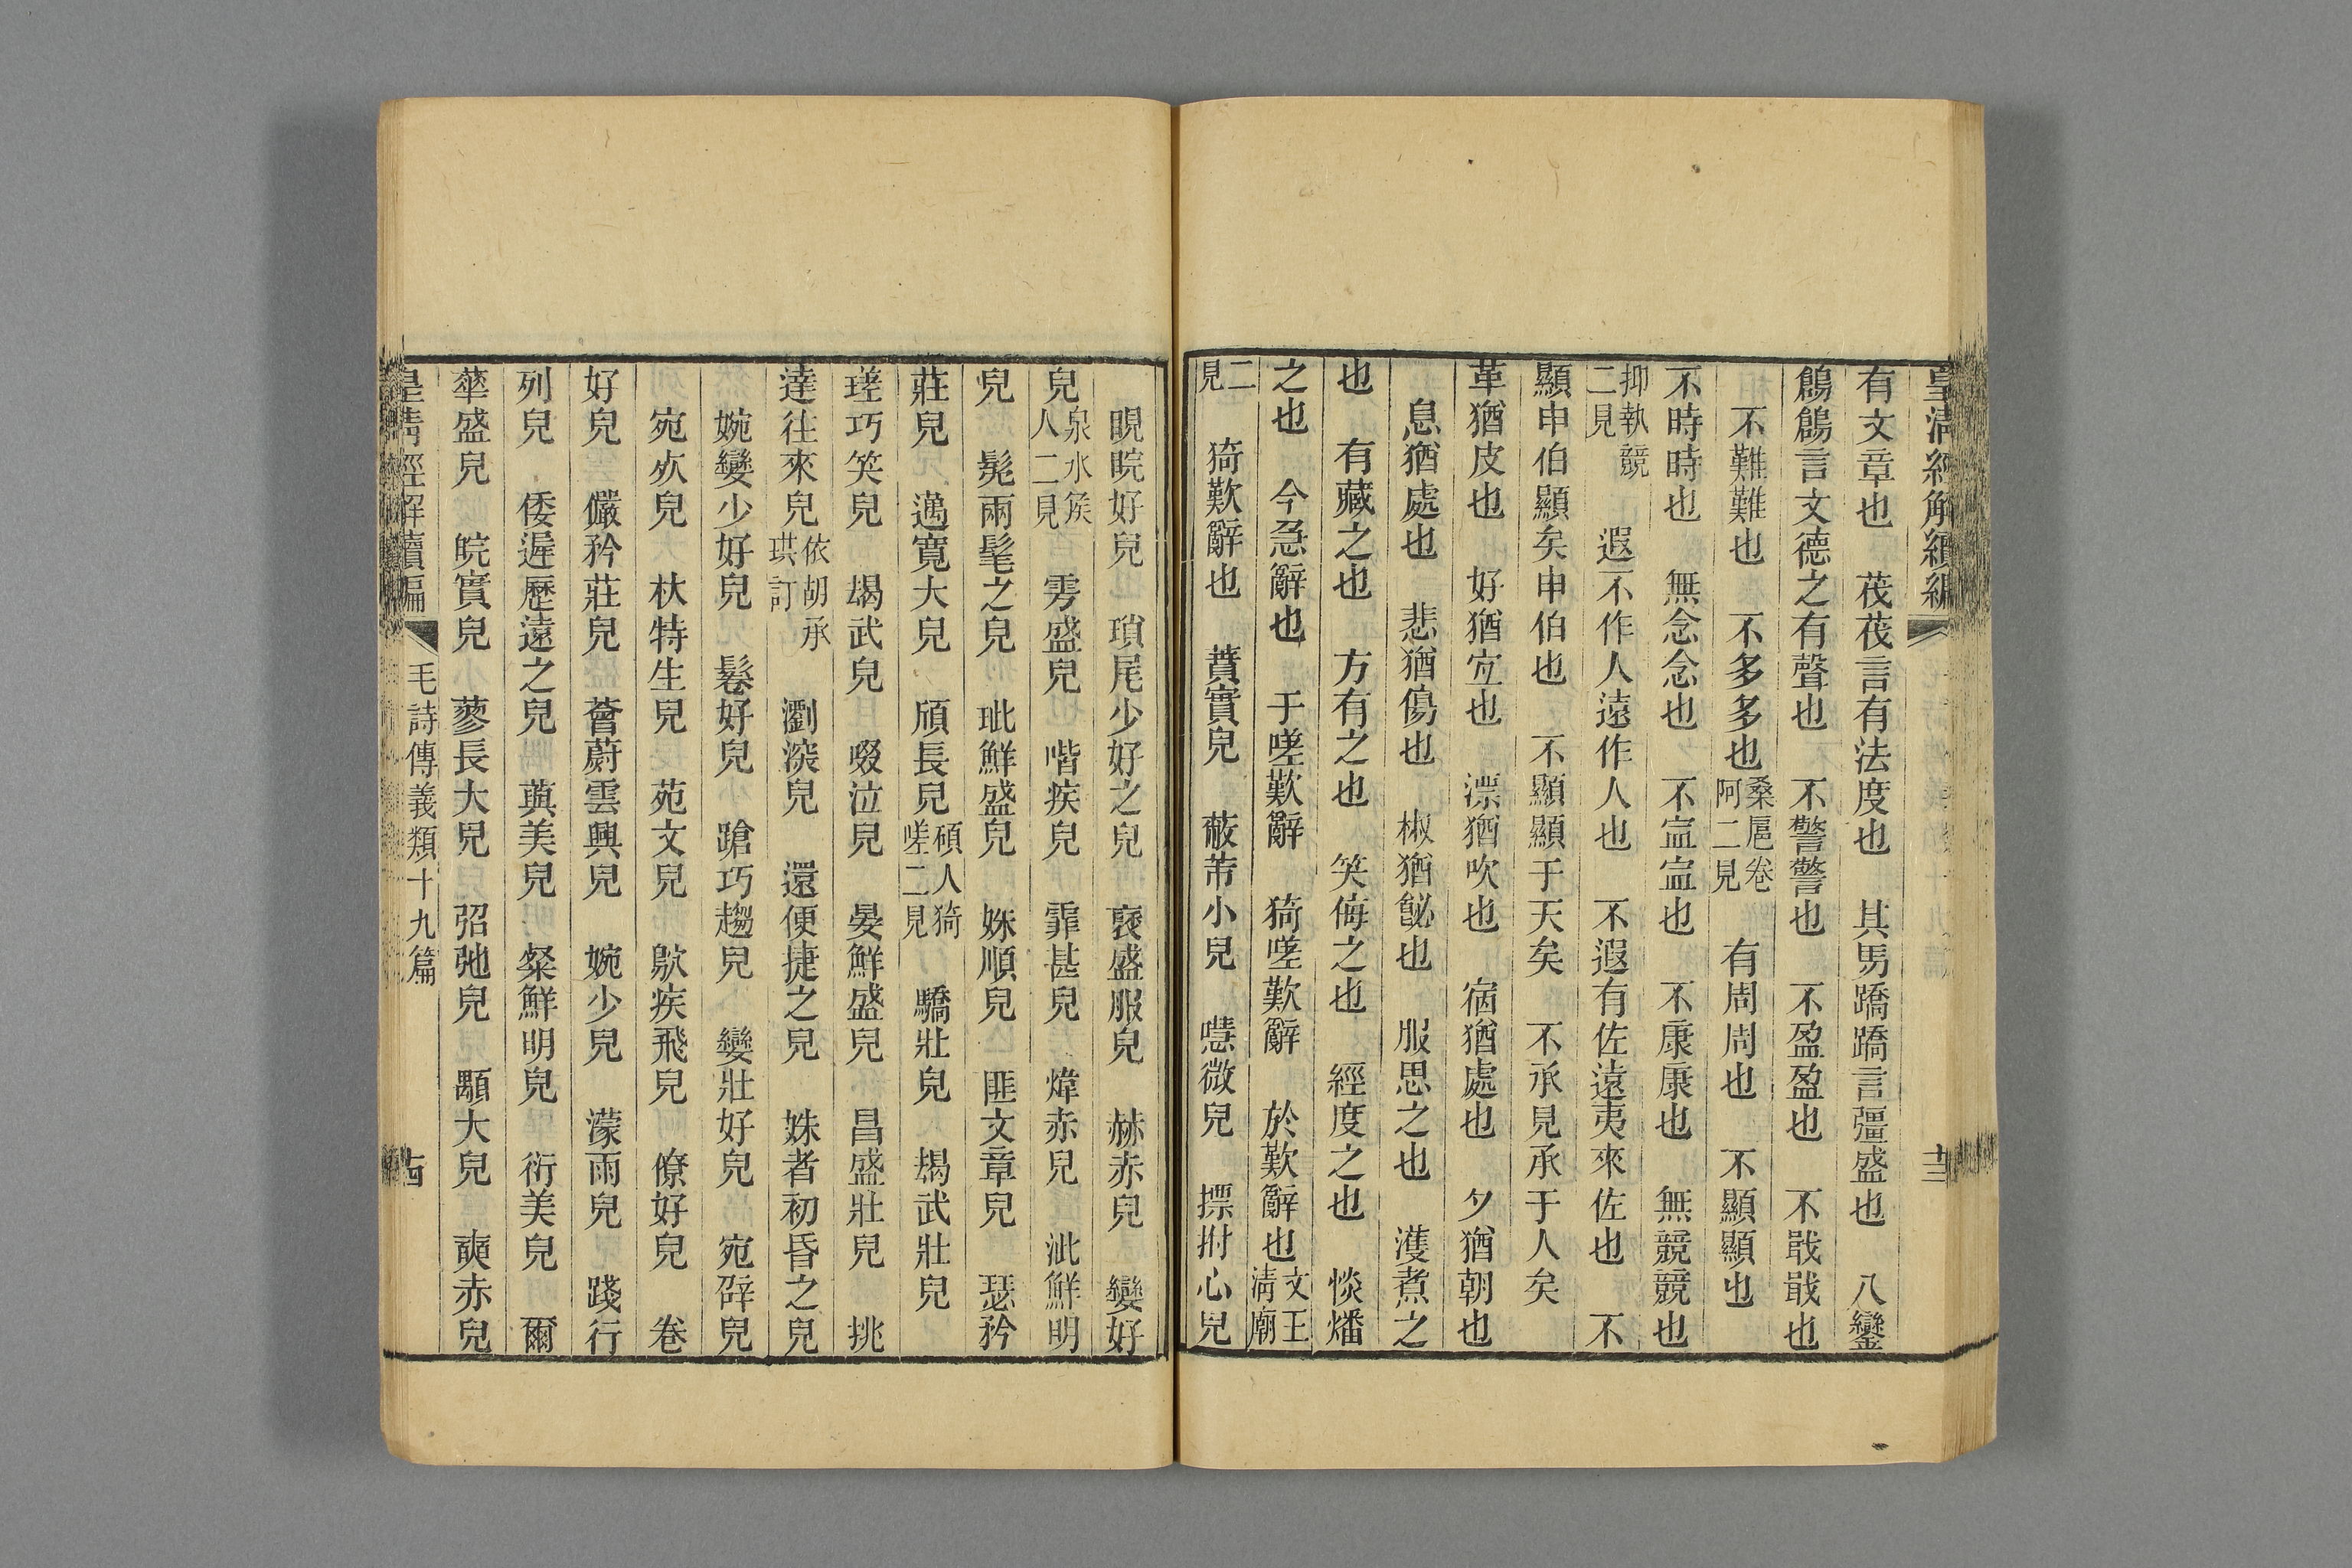 皇淸經解續編
十三
有文章也　茷茷言有法度也　其男蹻蹻言彊盛也　八鸞
鶬鶬言文德之有聲也　不警警也　不盈盈也　不戢戢也
不難難也　不多多也桑扈卷阿二見　有周周也　不顯顯也
不時時也　無念念也　不寍寍也　不康康也　無競競也
抑執競二見　遐不作人遠作人也　不遐有佐遠夷來佐也　不
顯申伯顯矣申伯也　不顯顯于天矣　不承見承于人矣
革猶皮也　好猶宐也　漂猶吹也　宿猶處也　夕猶朝也
息猶處也　悲猶傷也　椒猶飶也　服思之也　濩煮之
也　有藏之也　方有之也　笑侮之也　經度之也　惔燔
之也　今急辭也　于嗟歎辭　猗嗟歎辭　於歎辭也文王淸廟
二見　猗歎辭也　蕡實皃　蔽芾小皃　嘒微皃　摽拊心皃
睍睆好皃　瑣尾少好之皃　褎盛服皃　赫赤皃　孌好
皃泉水矦人二見　雱盛皃　喈疾皃　霏甚皃　煒赤皃　泚鮮明
皃　髧兩髦之皃　玼鮮盛皃　姝順皃　匪文章皃　瑟矜
莊皃　薖寬大皃　頎長皃碩人猗嗟二見　驕壯皃　朅武壯皃
瑳巧笑皃　朅武皃　啜泣皃　晏鮮盛皃　昌盛壯皃　挑
達往來皃依胡承珙訂　瀏深皃　還便捷之皃　姝者初昏之皃
婉孌少好皃　鬈好皃　蹌巧趨皃　孌壯好皃　宛辟皃
宛㱾皃　杕特生皃　苑文皃　鴥疾飛皃　僚好皃　卷
好皃　儼矜莊皃　薈蔚雲興皃　婉少皃　濛雨皃　踐行
列皃　倭遲歷遠之皃　藇美皃　粲鮮明皃　衎美皃　爾
華盛皃　睆實皃　蓼長大皃　弨弛皃　顒大皃　奭赤皃
皇淸經解續編
毛詩傳義類十九篇
十四